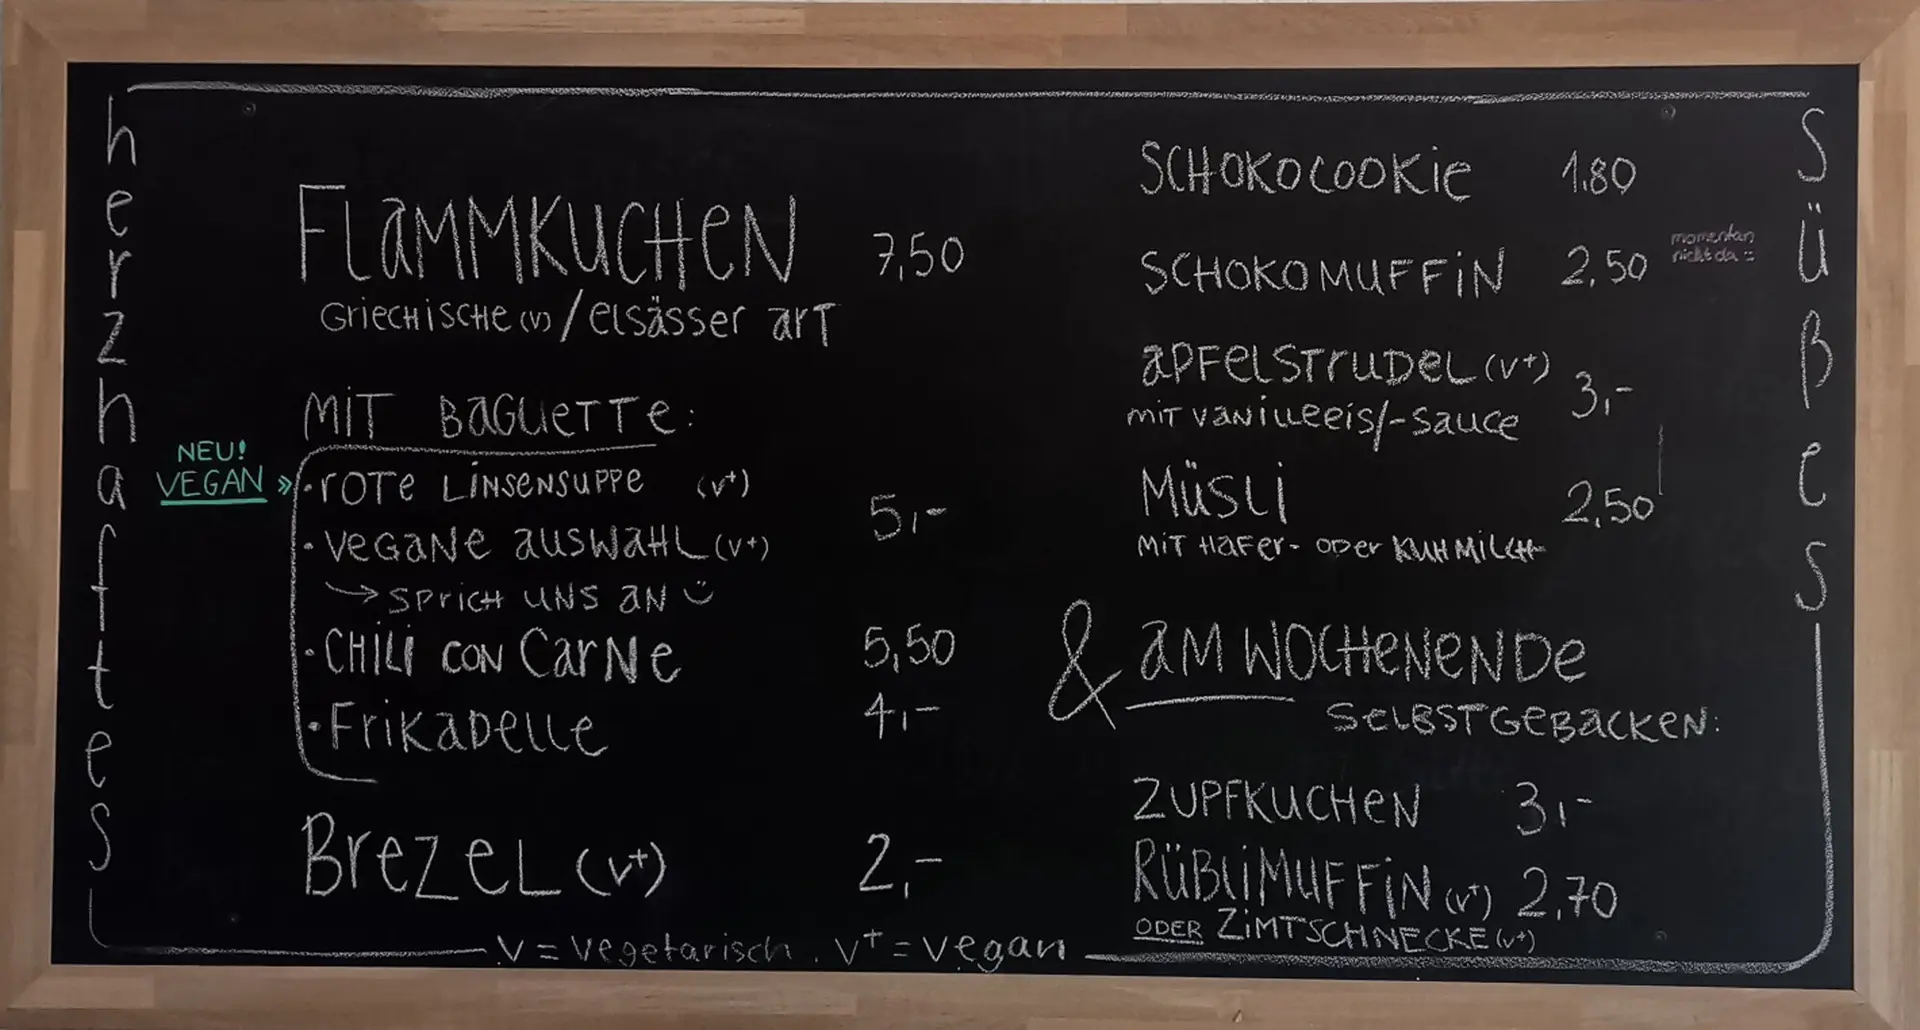 herzhaftes
FLAMMKUCHEN 7,50
GRIECHISCHE (V) / ELSÄSSER ART
MIT BAGUETTE:
NEU!
VEGAN »
· ROTE LINSENSUPPE (V+)
· VEGANE AUSWAHL (V+) 5,-
→ SPRICH UNS AN ☺
· CHILI CON CARNE 5,50
· FRIKADELLE 4,-
BREZEL (V+) 2,-
Süßes
SCHOKOCOOKIE 1.80
SCHOKOMUFFIN 2,50
momentan
nicht da :
APFELSTRUDEL (V+) 3,-
MIT VANILLEEIS/-SAUCE
MÜSLI 2,50
MIT HAFER- ODER KUHMILCH
& AM WOCHENENDE
SELBSTGEBACKEN:
ZUPFKUCHEN 3,-
RÜBLIMUFFIN (V+) 2,70
ODER ZIMTSCHNECKE (V+)
V = vegetarisch. V+ = vegan